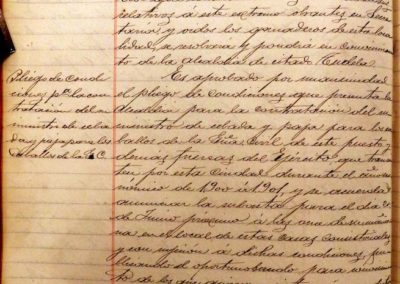 relativos á este extremo obrantes en Secre
taría y oidos los ganaderos de esta loca
lidad, á resolverá y pondrá en conocimien
to de la alcaldía de estado Tudela.
Pliego de Condi
ciones pª la con
tratación del su
ministro de ceba
da y paja para los
caballos de la G. C.
Es aprobado por unanimidad
el pliego de condiciones que presenta la
Alcaldía para la contratación del su
ministro de cebada y paja para los ca
ballos de la Gª Civil de este puesto y
demás fuerzas del Ejército que transi
ten por esta Ciudad durante el año eco
nómico de 1900 á 1901, y se acuerda
anunciar la subasta para el día
de Junio próximo á las once de su maña
na en el local de estas casas consistoriales
y con sujeción á dichas condiciones,
el oportuno bando para conocimien
to de los que quieran